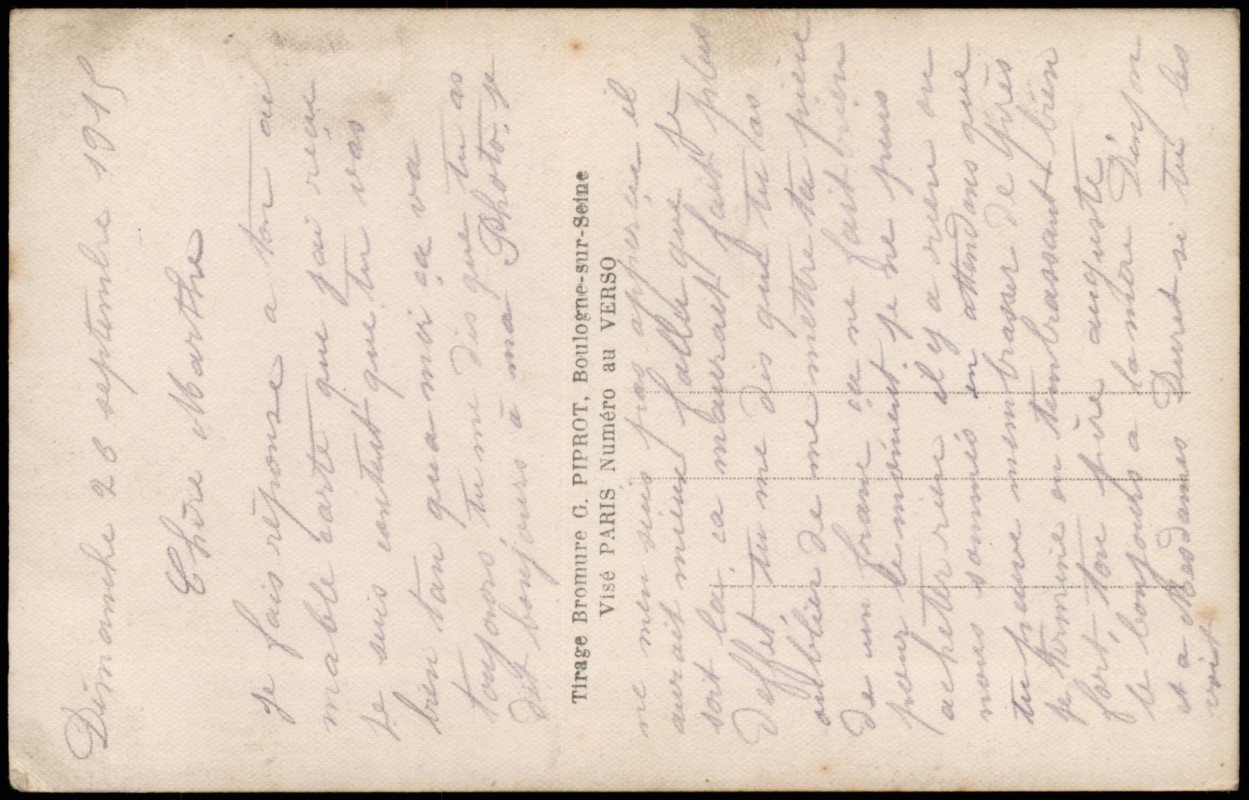 Dimanche 26 septembre 1915
Chère Marthe
Je fais réponse a ton ai
mable carte que jai reçu
je suis contant que tu vas
bien tan qua moi ça va
toujours, tu me dis que tu as
dit bonjours a ma Photo, je
Tirage Bromure G. PIPROT, Boulogne-sur-Seine
Visé PARIS Numéro au VERSO
ne men suis pas aperçu il
aurait mieux fallu que je
soit la, ça maurait fait plus
deffet tu me dis que tu as
oublier de me mettre ta pièce
de un franc ça ne fait rien
pour le moment je ne puis
acheter rien il y a rien ou
nous sommes en attendans que
tu puve membrasser de près
je termine en tembrassant bien
fort, ton frère auguste
le bonjours a la mère Dinjon
et a Mesdames Duret si tu les
voit